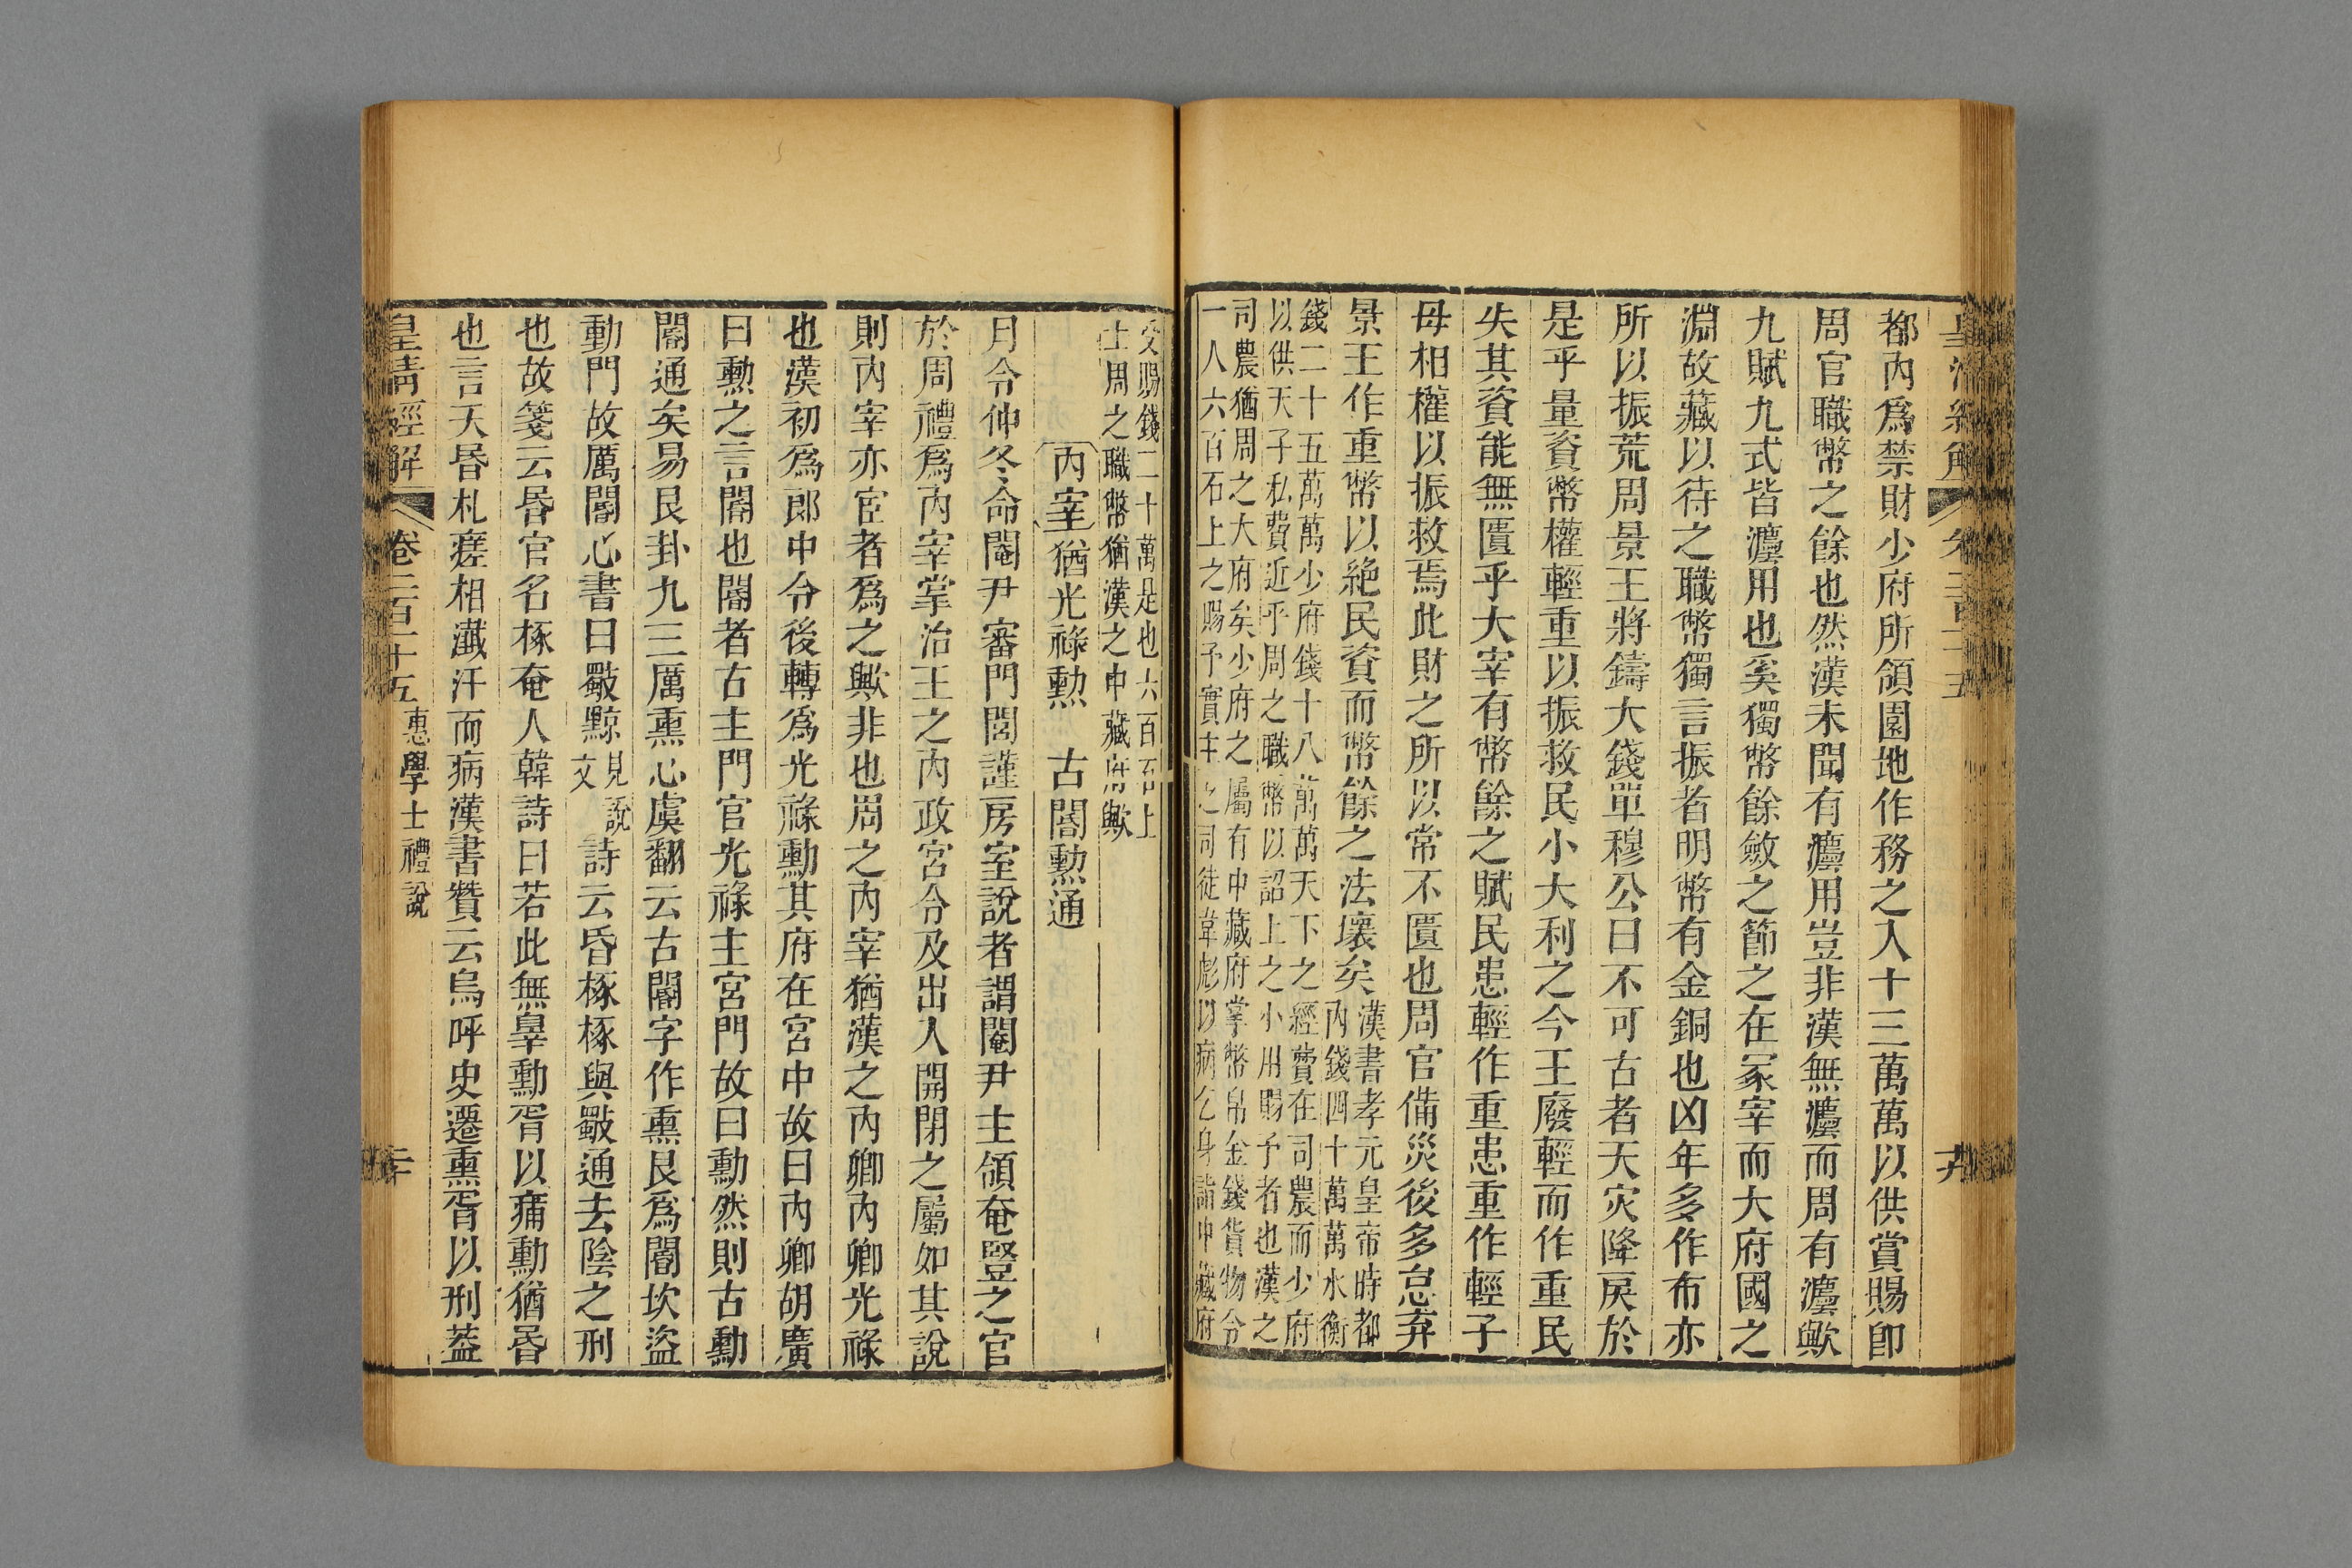 都內爲禁財少府所領園地作務之入十三萬萬以供賞賜卽
周官職幣之餘也然漢未聞有灋用豈非漢無灋而周有灋歟
九賦九式皆灋用也奚獨幣餘斂之節之在冡宰而大府國之
淵故藏以待之職幣獨言振者明幣有金銅也凶年多作布亦
所以振荒周景王將鑄大錢單穆公曰不可古者天灾降戾於
是乎量資幣權輕重以振救民小大利之今王廢輕而作重民
失其資能無匱乎大宰有幣餘之賦民患輕作重患重作輕子
母相權以振救焉此財之所以常不匱也周官備災後多怠弃
景王作重幣以絶民資而幣餘之法壞矣漢書孝元皇帝時都
內錢四十萬萬水衡
錢二十五萬萬少府錢十八萬萬天下之經費在司農而少府
以供天子私費近乎周之職幣以詔上之小用賜予者也漢之
司農猶周之大府矣少府之屬有中藏府掌幣帛金錢貨物令
一人六百石上之賜予實主之司徒韋彪以病乞身詔中藏府
受賜錢二十萬是也六百石上
士周之職幣猶漢之中藏府歟
內宰猶光祿勲　古閽勲通
月令仲冬命閹尹審門閭謹房室說者謂閹尹主領奄豎之官
於周禮爲內宰掌治王之內政宮令及出入開閉之屬如其說
則內宰亦宦者爲之歟非也周之內宰猶漢之內卿內卿光祿
也漢初爲郎中令後轉爲光祿勳其府在宮中故曰內卿胡廣
曰勲之言閽也閽者古主門官光祿主宮門故曰勳然則古勳
閽通矣易艮卦九三厲熏心虞翻云古閽字作熏艮爲閽坎盜
動門故厲閽心書曰斀黥見說
文詩云昏椓椓與斀通去陰之刑
也故箋云昬官名椓奄人韓詩曰若此無辠勳胥以痡勳猶昬
也言天昬札瘥相瀐汗而病漢書贊云烏呼史遷熏胥以刑葢
皇清經解　卷二百十五　惠學士禮說　二十